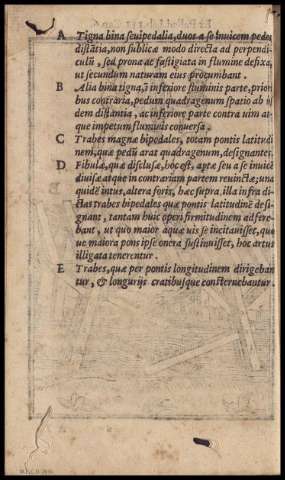 A Tigna bina sesquipedalia, duos a se inuicem pedes
distãtia, non sublica modo directa ad perpendi
culũ, sed prona ac fastigiata in flumine defixa,
ut secundum naturam eius procumbant.
B Alia bina tigna, ĩ inferiore fluminis parte, priori
bus contraria, pedum quadragenum spatio ab
dem distantia, ac inferiore parte contra uim at-
que impetum fluminis conuersa.
C Trabes magnæ bipedales, totam pontis latitudi
nem, quæ pedũ erat quadragenum, designantes.
D Fibulæ, quæ disclusæ, hoc est, aptæ seu a se inuicẽ
diuisæ atque in contrariam partem reuinctæ; una
quidẽ intus, altera foris, hæc supra, illa infra di
ctas trabes bipedales quæ pontis latitudinẽ desi-
gnant, tantam huic operi firmitudinem adfere-
bant, ut quo maior aquæ uis se incitauisset, quo
ue maiora pons ipse onera sustinuisset, hoc artius
illigata tenerentur.
E Trabes, quæ per pontis longitudinem dirigeban
tur, & longurijs cratibusque consternebantur.